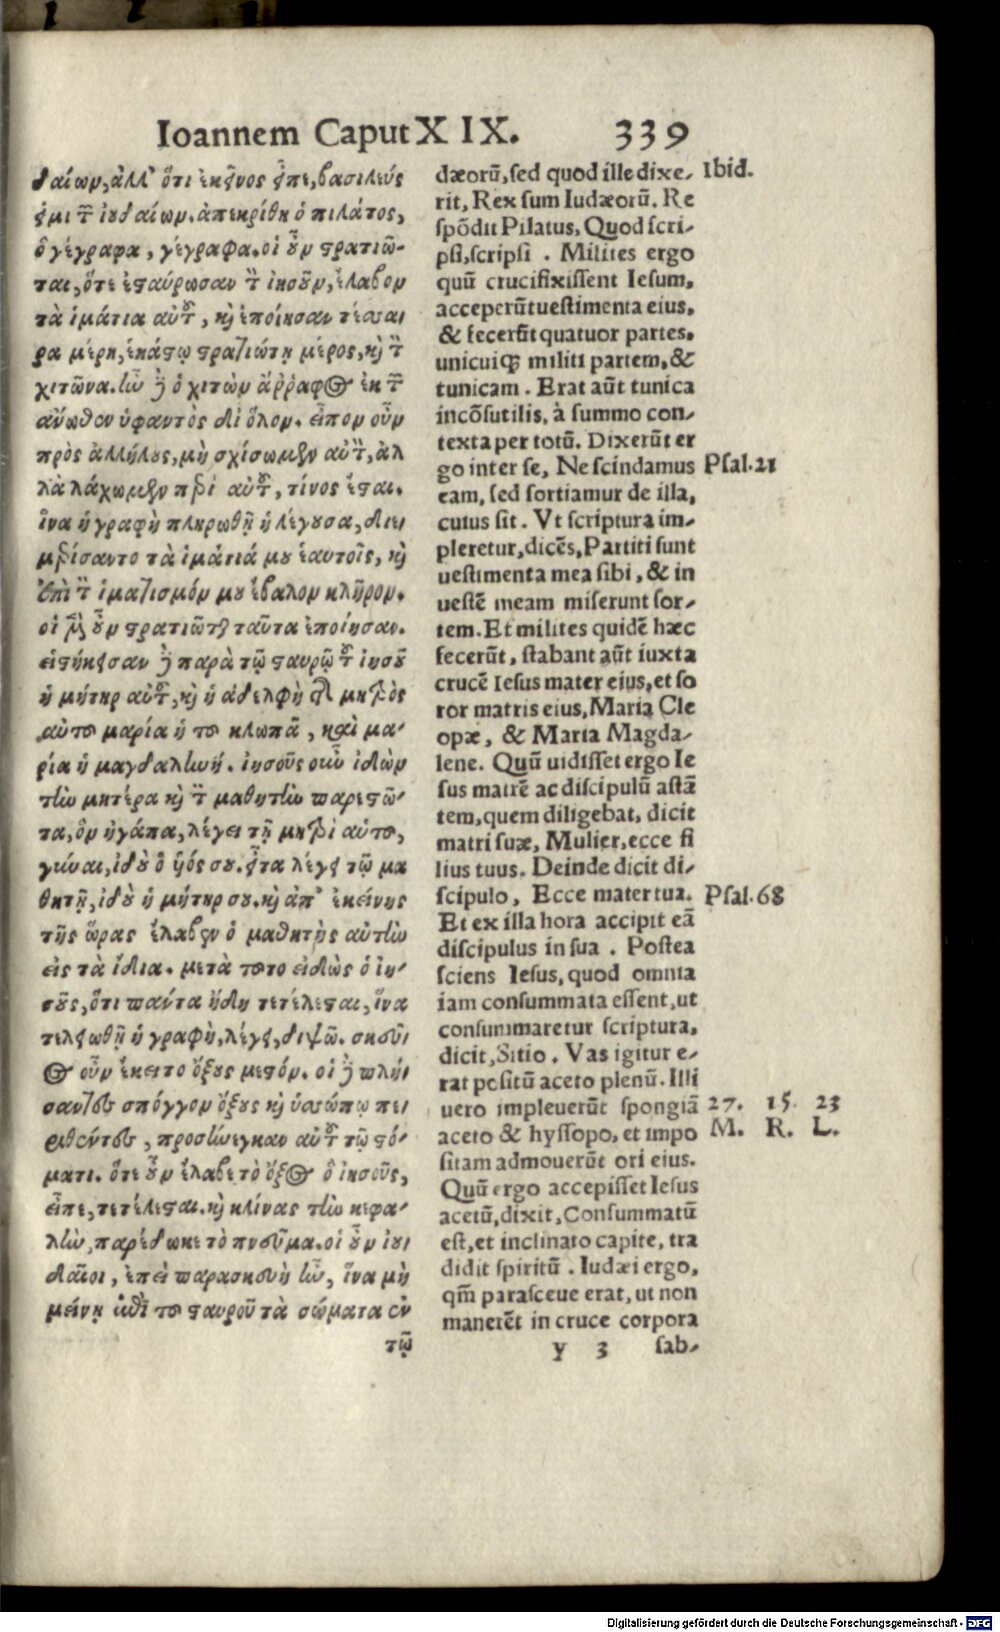 Ioannem Caput X IX. 339
δαίων, ἀλλ' ὅτι ἐκεῖνος εἶπε, βασιλεύς
εἰμι τῶν ἰουδαίων. ἀπεκρίθη ὁ πιλάτος,
ὃ γέγραφα, γέγραφα. οἱ οὖν στρατιῶ-
ται, ὅτε ἐσταύρωσαν τὸν ἰησοῦν, ἔλαβον
τὰ ἱμάτια αὐτοῦ, καὶ ἐποίησαν τέσσα
ρα μέρη, ἑκάστῳ στρατιώτῃ μέρος, καὶ τὸν
χιτῶνα. ἦν δὲ ὁ χιτὼν ἄῤῥαφος ἐκ τῶν
ἄνωθεν ὑφαντὸς δι' ὅλου. εἶπον οὖν
πρὸς ἀλλήλους, μὴ σχίσωμεν αὐτὸν, ἀλ
λὰ λάχωμεν περὶ αὐτοῦ, τίνος ἔσται.
ἵνα ἡ γραφὴ πληρωθῇ ἡ λέγουσα, διε
μερίσαντο τὰ ἱμάτιά μου ἑαυτοῖς, καὶ
ἐπὶ τὸν ἱματισμόν μου ἔβαλον κλῆρον.
οἱ μὲν οὖν στρατιῶται ταῦτα ἐποίησαν.
εἱστήκεισαν δὲ παρὰ τῷ σταυρῷ τοῦ ἰησοῦ
ἡ μήτηρ αὐτοῦ, καὶ ἡ ἀδελφὴ τῆς μητρὸς
αὐτοῦ μαρία ἡ τοῦ κλωπᾶ, καὶ μα-
ρία ἡ μαγδαληνή. ἰησοῦς οὖν ἰδὼν
τὴν μητέρα καὶ τὸν μαθητὴν παρεστῶ-
τα, ὃν ἠγάπα, λέγει τῇ μητρὶ αὐτοῦ,
γύναι, ἰδοὺ ὁ ὑός σου. εἶτα λέγει τῷ μα
θητῇ, ἰδοὺ ἡ μήτηρ σου. καὶ ἀπ' ἐκείνης
τῆς ὥρας ἔλαβεν ὁ μαθητὴς αὐτὴν
εἰς τὰ ἴδια. μετὰ τοῦτο εἰδὼς ὁ ἰη-
σοῦς, ὅτι πάντα ἤδη τετέλεσται, ἵνα
τελειωθῇ ἡ γραφὴ, λέγει, διψῶ. σκεῦ
ος οὖν ἔκειτο ὄξους μεστόν. οἱ δὲ πλή
σαντες σπόγγον ὄξους καὶ ὑσσώπῳ πε
ριθέντες, προσήνεγκαν αὐτοῦ τῷ στό-
ματι. ὅτε οὖν ἔλαβε τὸ ὄξος ὁ ἰησοῦς,
εἶπε, τετέλεσται. καὶ κλίνας τὴν κεφα-
λὴν, παρέδωκε τὸ πνεῦμα. οἱ οὖν ἰου
δαῖοι, ἐπεὶ παρασκευὴ ἦν, ἵνα μὴ
μείνῃ ἐπὶ τοῦ σταυροῦ τὰ σώματα ἐν
τῷ
dæorũ, sed quod ille dixe-
rit, Rex sum Iudæorũ. Re
spõdit Pilatus, Quod scri-
psi, scripsi. Milites ergo
quũ crucifixissent Iesum,
acceperũt uestimenta eius,
& fecerũt quatuor partes.
unicuiq; militi partem, &
tunicam. Erat aũt tunica
incõsutilis, à summo con-
texta per totũ. Dixerũt er
go inter se, Ne scindamus
eam, sed sortiamur de illa,
cuius sit. Vt scriptura im-
pleretur, dicẽs, Partiti sunt
uestimenta mea sibi, & in
uestẽ meam miserunt sor-
tem. Et milites quidẽ hæc
fecerũt, stabant aũt iuxta
crucẽ Iesus mater eius, et so
ror matris eius, Maria Cle
opæ, & Maria Magda-
lene. Quũ uidisset ergo Ie
sus matrẽ ac discipulũ astã
tem, quem diligebat, dicit
matri suæ, Mulier, ecce fi
lius tuus. Deinde dicit di-
scipulo, Ecce mater tua.
Et ex illa hora accipit eã
discipulus in sua. Postea
sciens Iesus, quod omnia
iam consummata essent, ut
consummaretur scriptura,
dicit, Sitio. Vas igitur e-
rat positũ aceto plenũ. Illi
uero impleuerũt spongiã
aceto & hyssopo, et impo
sitam admouerũt ori eius.
Quũ ergo accepisset Iesus
acetũ, dixit, Consummatũ
est, et inclinato capite, tra
didit spiritũ. Iudæi ergo,
qm̃ parasceue erat, ut non
manerẽt in cruce corpora
y 3 sab-
Ibid.
Psal. 21
Psal. 68
27. 15. 23
M. R. L.
Digitalisierung gefördert durch die Deutsche Forschungsgemeinschaft - DFG